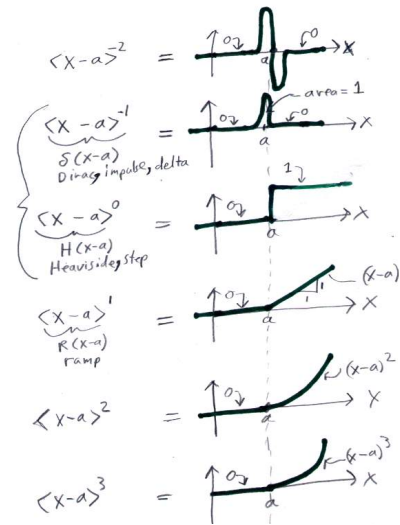 <x-a>⁻² = 0 0 a X
<x-a>⁻¹ = 0 area = 1 0 a X
δ(x-a)
Dirac, impulse, delta
<x-a>⁰ = 0 1 a X
H(x-a)
Heaviside, step
<x-a>¹ = 0 1 1 (x-a) a X
R(x-a)
ramp
<x-a>² = 0 (x-a)² a X
<x-a>³ = 0 (x-a)³ a X